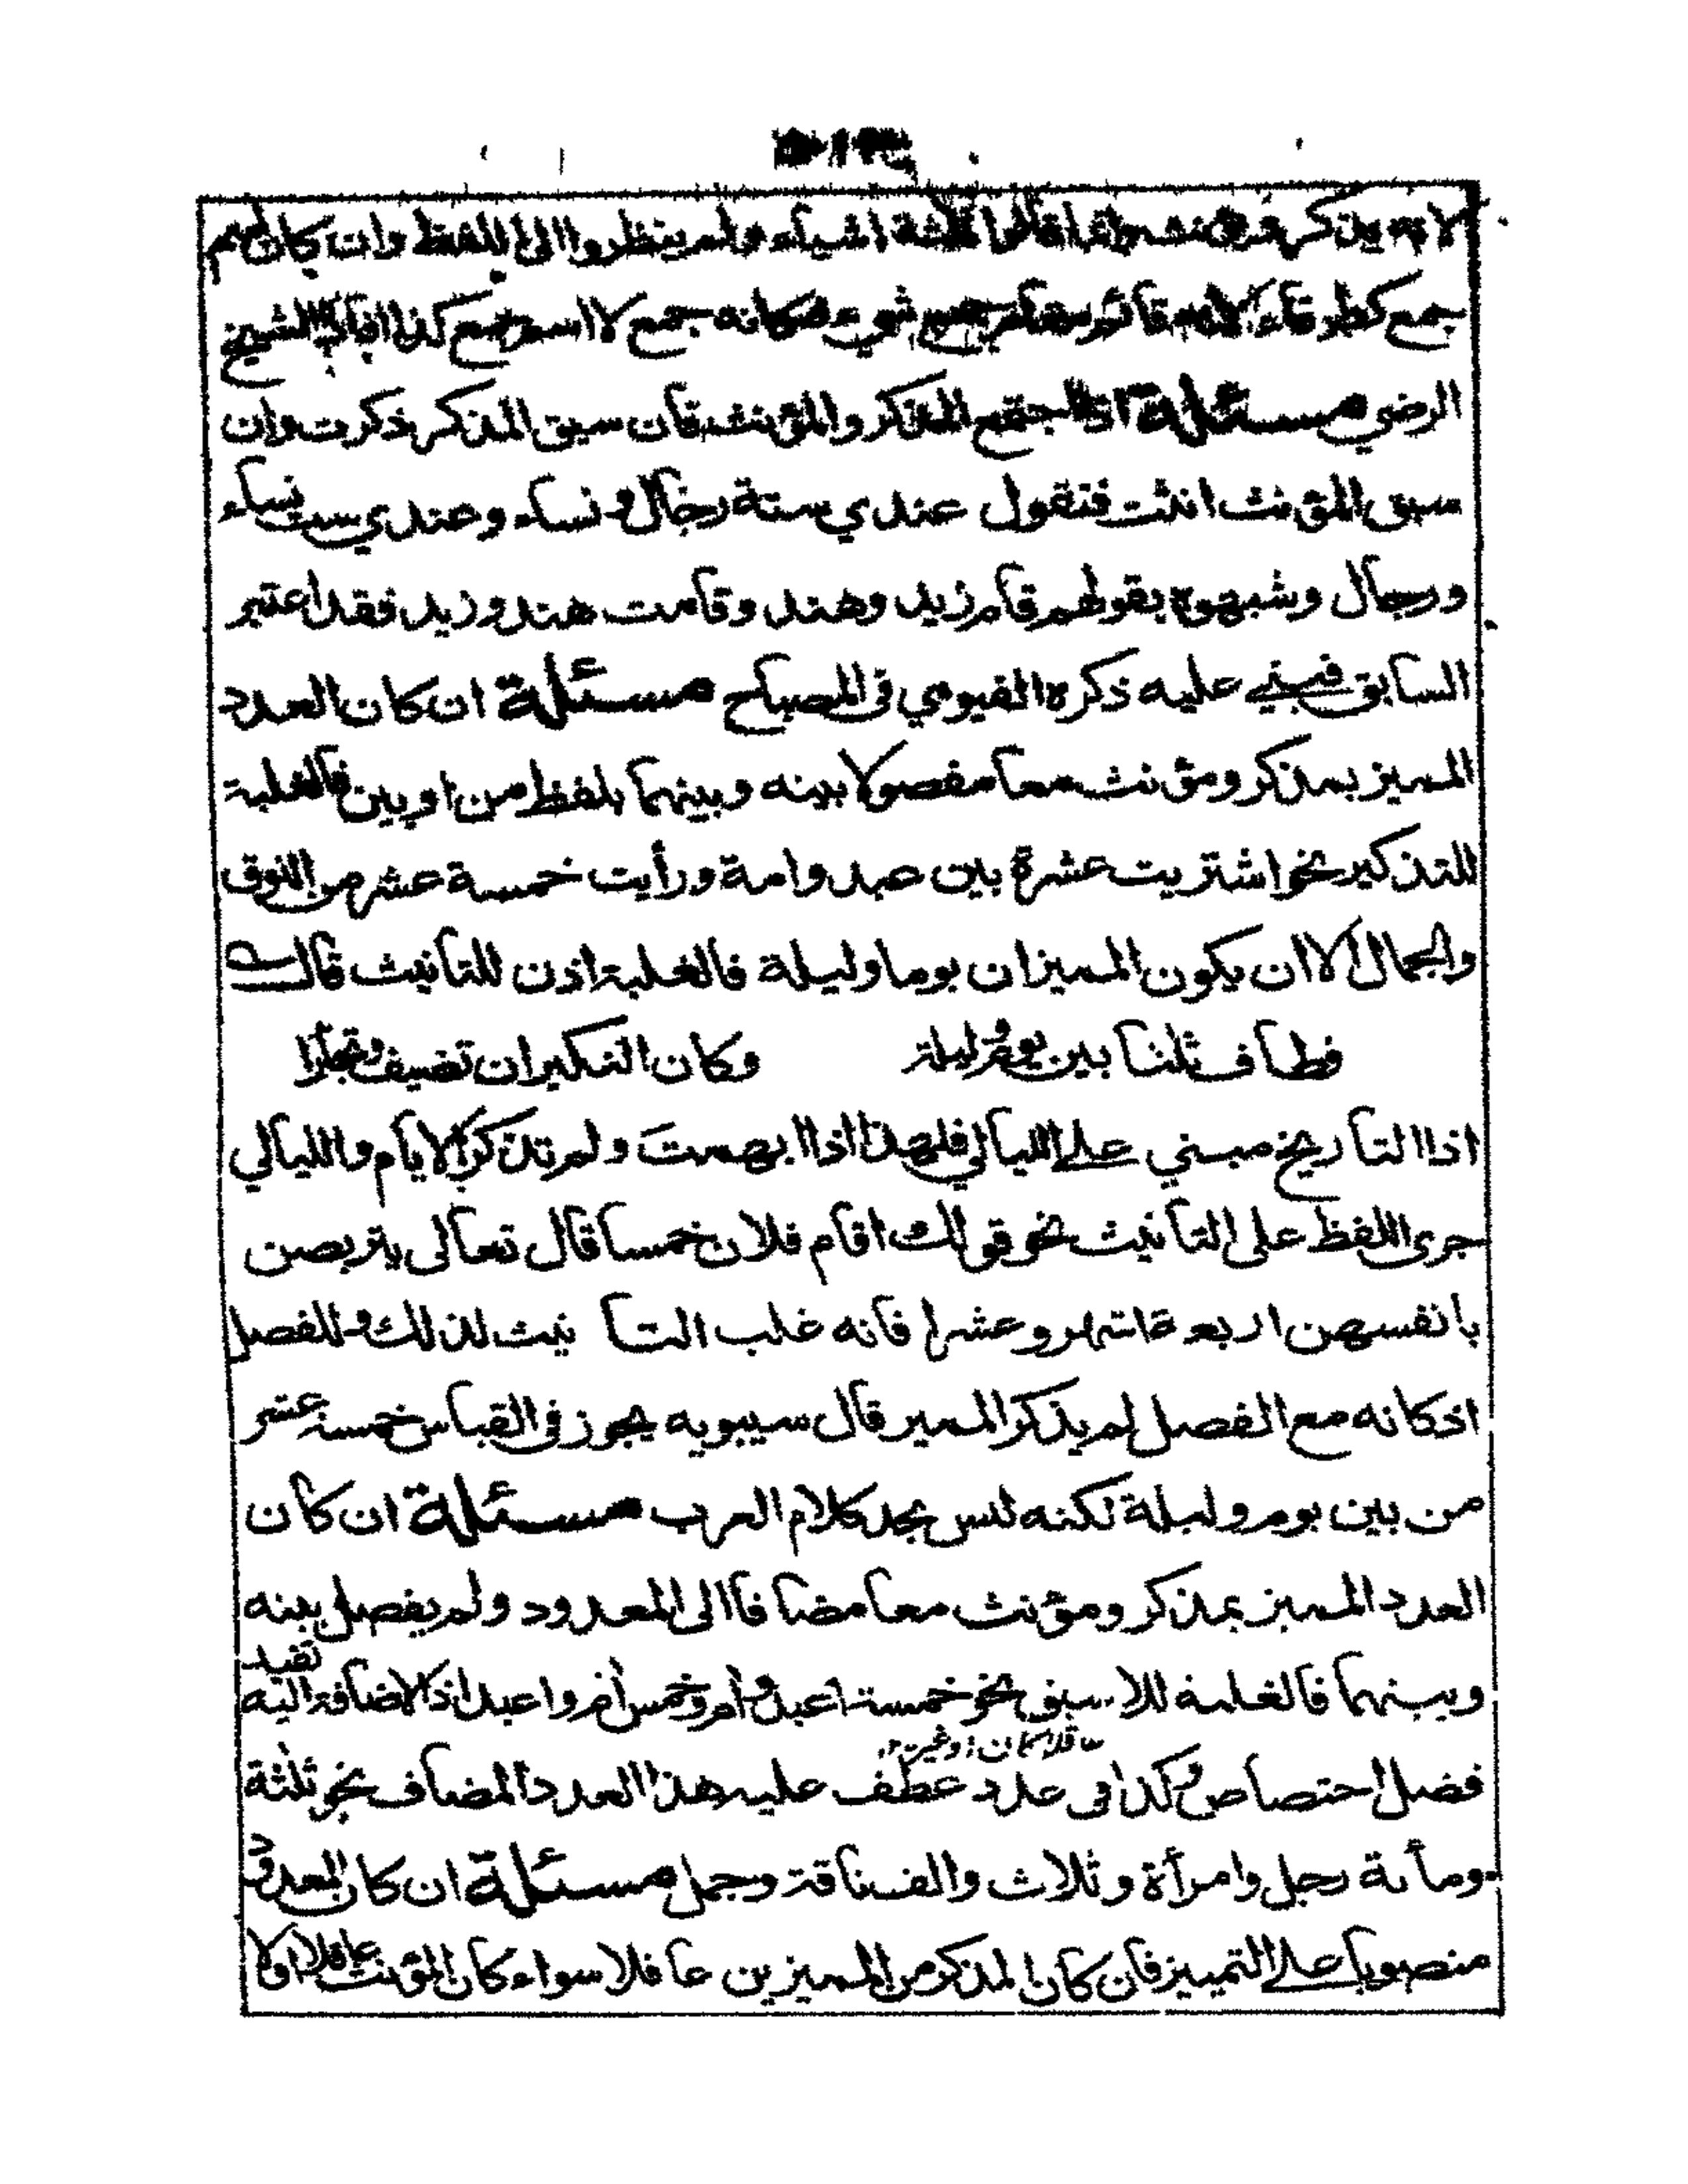 لانه يذكر ويؤنث وانما قالوا ثلاثة اشياء ولم ينظروا الى اللفظ وان كان اسم
جمع كطرفاء لانه قائم مقام جمع شيء فكانه جمع لا اسم جمع كذا افاده الشيخ
الرضي مسئلة اذا اجتمع المذكر والمؤنث فان سبق المذكر ذكرت وان
سبق المؤنث انثت فتقول عندي ستة رجال ونساء وعندي ست نساء
ورجال وشبهوه بقولهم قام زيد وهند وقامت هند وزيد فقد اعتبر
السابق فبني عليه ذكره الفيومي في المصباح مسئلة ان كان العدد
المميز بمذكر ومؤنث معا مفصولا بينه وبينهما بلفظ من او بين فالغلبة
للتذكير نحو اشتريت عشرة بين عبد وامة ورأيت خمسة عشر من النوق
والجمال الا ان يكون المميزان يوما وليلة فالغلبة اذن للتأنيث قال
فطاف ثلثا بين يوم وليلة وكان النكير ان تضيف وتجأرا
اذ التأريخ مبني على الليالي فلهذا اذا ابهمت ولم تذكر الايام والليالي
جرى اللفظ على التأنيث نحو قولك اقام فلان خمسا قال تعالى يتربصن
بانفسهن اربعة اشهر وعشرا فانه غلب التأنيث لذلك وللفصل
اذ كانه مع الفصل لم يذكر المميز قال سيبويه يجوز في القياس خمسة عشر
من بين يوم وليلة لكنه ليس بحد كلام العرب مسئلة ان كان
العدد المميز بمذكر ومؤنث معا مضافا الى المعدود ولم يفصل بينه
وبينهما فالغلبة للاسبق نحو خمسة اعبد وآم وخمس آم واعبد اذ الاضافة اليه تفيد
فضل اختصاص وكذا في عدد عطف عليه هذا العدد المضاف نحو ثلثة
عاقلا كان اوغيره
ومأئة رجل وامرأة وثلاث والف ناقة وجمل مسئلة ان كان المعدود
منصوبا على التمييز فان كان المذكر من المميزين عاقلا سواء كان المؤنث عاقلا اولا